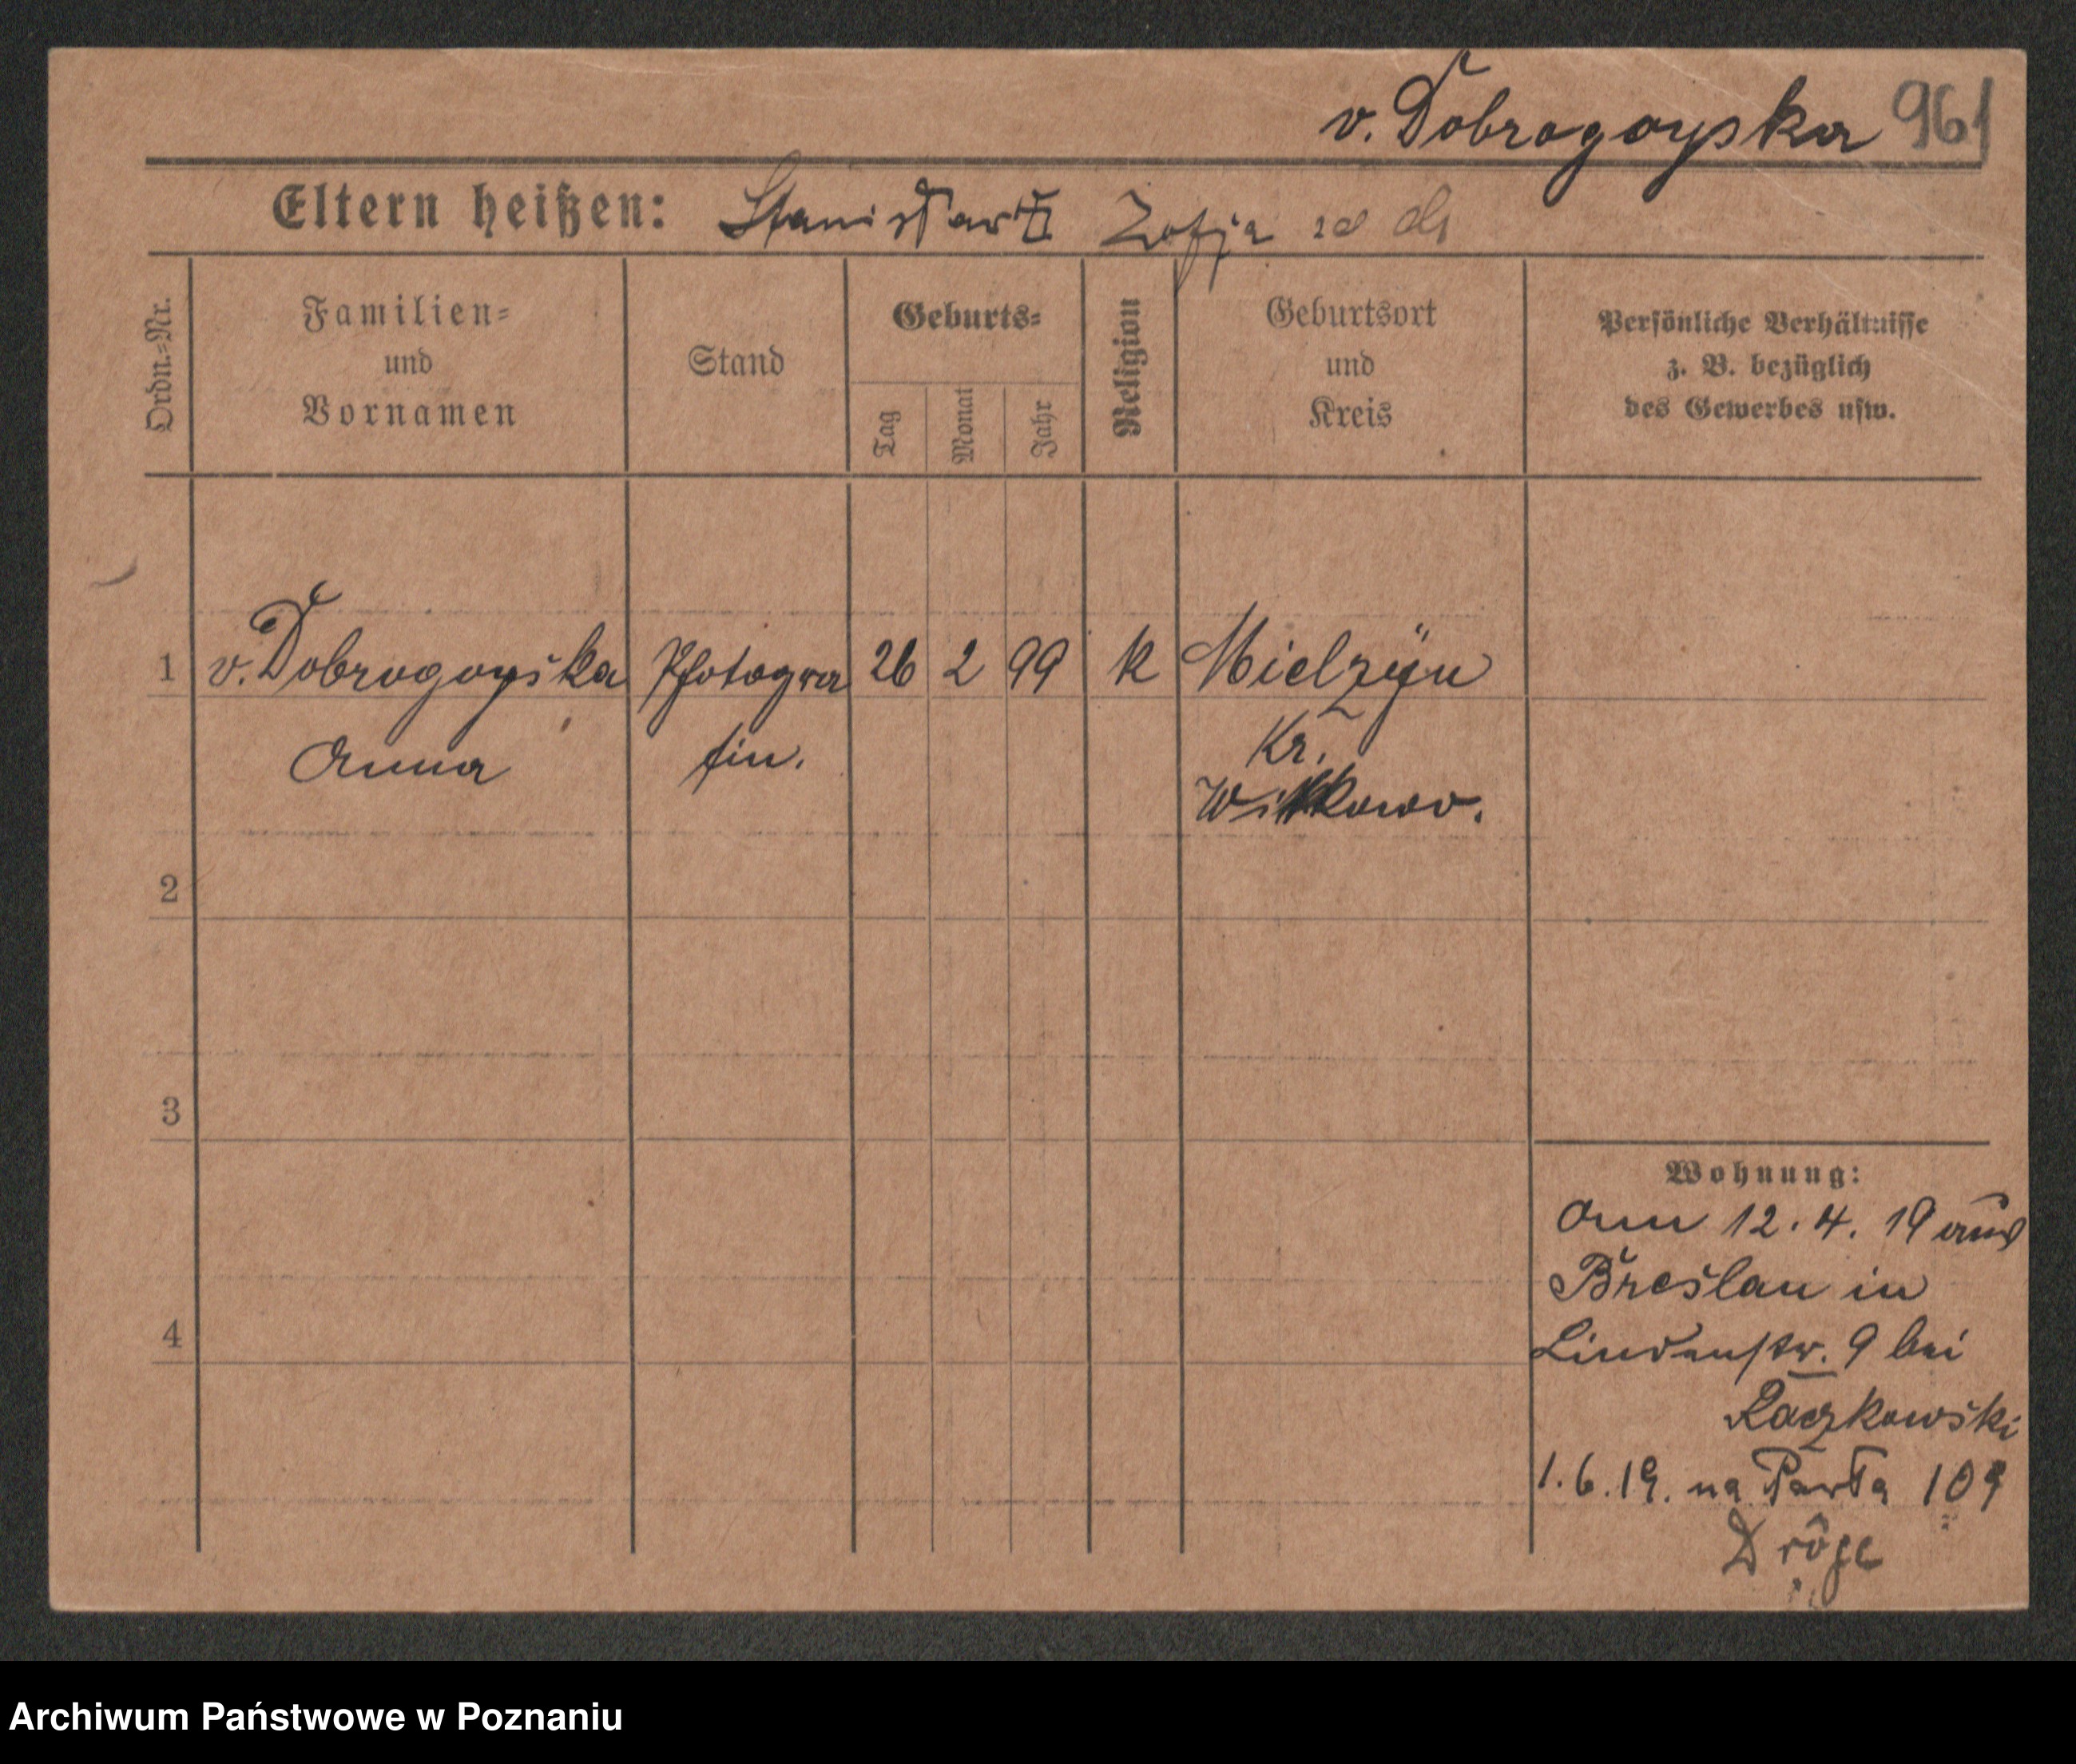 v. Dobrogoyska 961
Eltern heißen: Stanisław Zofja
Ordn.-Nr.
Familien-
und
Vornamen
Stand
Geburts-
Tag
Monat
Jahr
Religion
Geburtsort
und
Kreis
Persönliche Verhältnisse
z. B. bezüglich
des Gewerbes usw.
1 v. Dobrogoyska Photogra 26 2 99 k Mielzyn
Anna fin. Kr.
Witkowo.
2
3
4
Wohnung:
Am 12. 4. 19 aus
Breslau in
Lindenstr. 9 bei
Raczkowski
1. 6. 19. na
Dröge
Archiwum Państwowe w Poznaniu